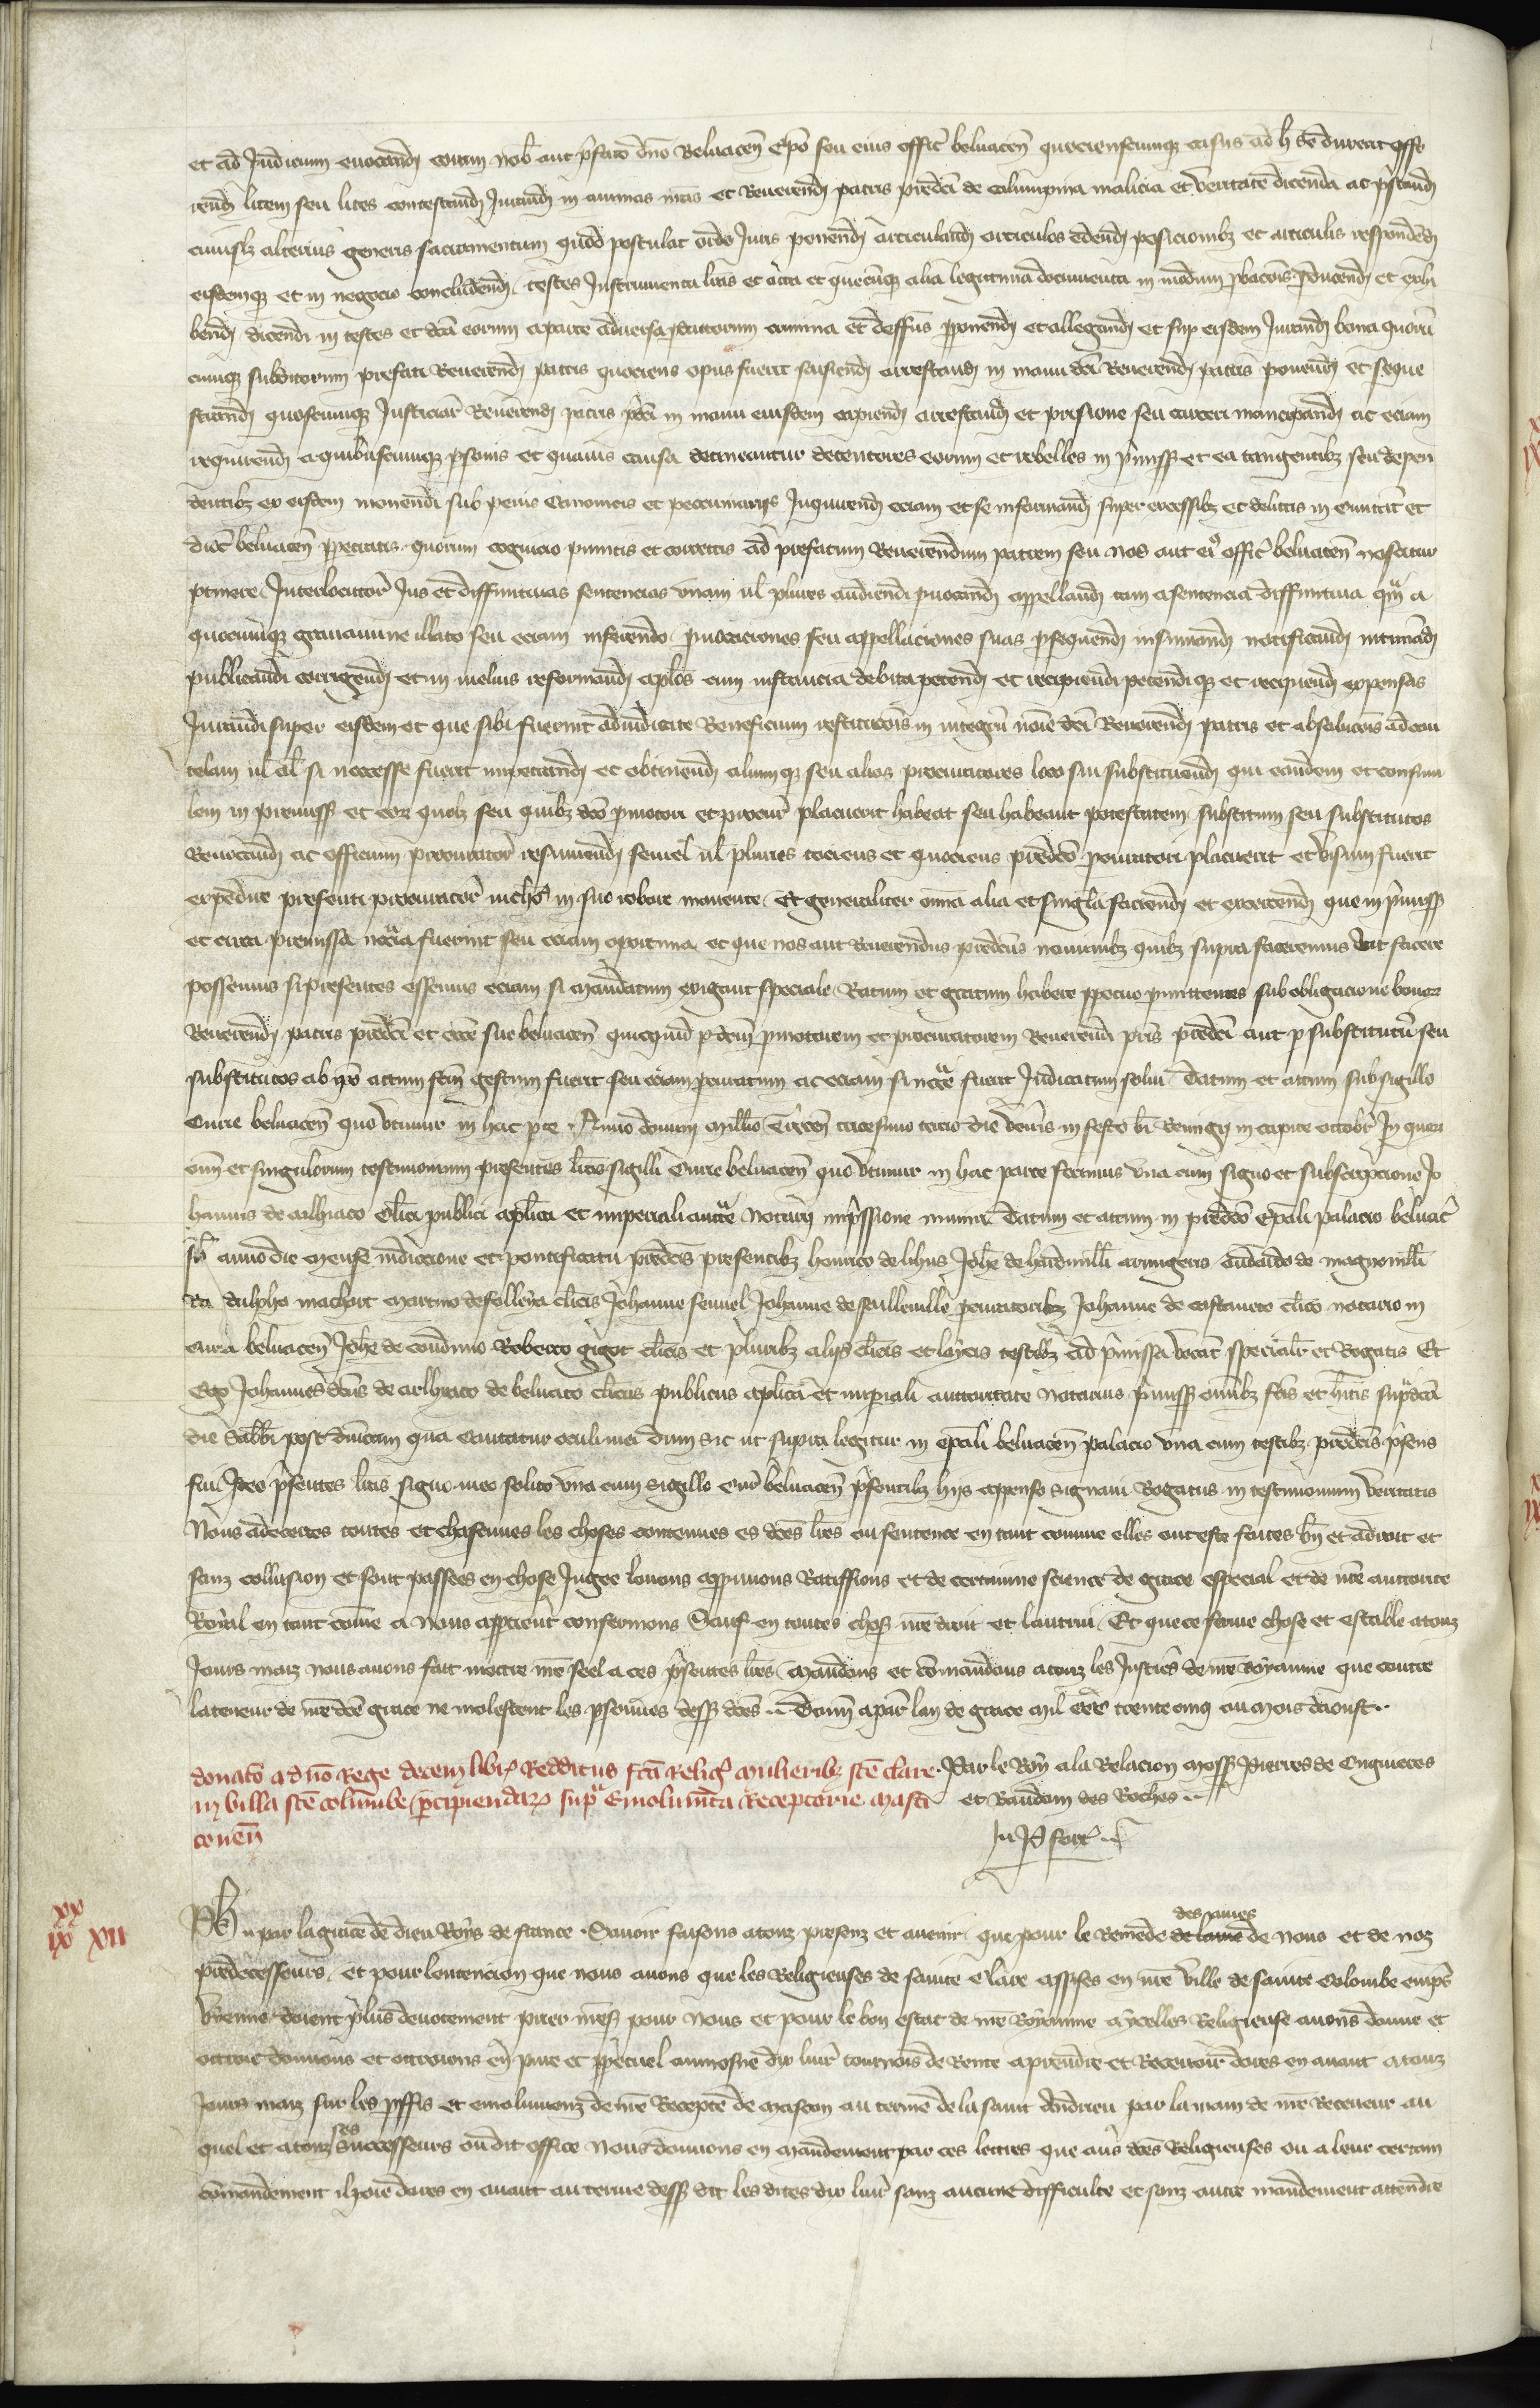 et ad Judicium euocand coram nob aut pfato dno Beluacen Epo seu eius offic beluacen quocienscumque casus ad h se duxerit offe
rend litem seu lites contestand Jurand in animas nras et Reuerend patris predci de calumpnia malicia et veritate dicenda ac pstand
cuiuslz alterius generis sacramentum quod postulat ordo Juris ponend articuland articulos edend posicionibz et articulis respondend
eisdemque et in negocio concludend testes Instrumenta litis et acta et quecunque alia legitima documenta in modum pbacois pducend et exhi
bend dicendi in testes et dca eorum a parte aduersa pductorum crimina et deffus pponend et allegand et sup eisdem Jurand bona quorum
cumque subditorum prefati Reuerend patris quociens opus fuerit saisiend arrestand in manu dci Reuerend patris ponend et seque
strand quoscumque Justiciar Reuerend patris pdci in manu eiusdem capiend arrestand et prisione seu carceri mancipand ac eciam
requirend a quibuscumque psonis et quauis causa detineantur detentores eorum et rebelles in pmiss et ea tangentibz seu depen
dentibz ex eisdem monendi sub penis Canonicis et peccuniariis Inquirend eciam et se informand super excessibz et delictis in Ciuitat et
dioc beluacen ppetratis quorum cognicio punitis et correctis ad prefatum Reuerendum patrem seu nos aut ei offic beluacen noscitur
ptinere Interlocutor Jus et diffinitiuas sentencias vnam ul plures audiendi puocand appelland tam a sentencia diffinitiua qm a
quocumque grauamine illato seu eciam inferendo puocaciones seu appellaciones suas psequend insinuand notificand intimand
publicandi corrigend et in melius reformand aplos cum instancia debita petend et recipiendi petendique et recipiend expensas
Jurandi super eisdem et que sibi fuerint adiudicate Beneficium restitucois in integru noie dci Reuerend patris et absolucois ad cau
telam ul al si necesse fuerit impetrand et obtinend alium que seu alios procuratores loco sui substituend qui eandem et consimi
lem in premiss et eor quolz seu quibz dco pmotori et procur placuerit habeat seu habeant potestatem substitum seu substitutos
Reuocand ac officium procurator resumend semel ul plures tociens et quociens predco procuratori placuerit et visum fuerit
expedire presenti procurator nichos in suo robore manente Et generaliter omia alia et singla faciend et exercend que in pmiss
et circa premissa necria fuerint seu eciam oportuna et que nos aut Reuerendus predcus nominibz quibz supra faceremus aut facere
possemus si presentes essemus eciam si mandatum exigant speciale Ratum et gratum habere ppetuo pmittentes sub obligacione bonor
Reuerend patris predci et eccie sue beluacen quicquid p dcm pmotorem et procuratorem Reuerendi pris predci aut p substitutu seu
substitutos ab ipo actum fcm gestum fuerit seu eciam procuratum ac eciam si necce fuerit Judicatum solui Datum et actum sub sigillo
Curie beluacen quo vtimur in hac pte Anno domini millio CCCcen tricesimo tercio die veneris in festo bi Remigij in capite octobr In quor
oim et singulorum testimonium presentes lras sigilli Curie beluacen quo vtimur in hac parte fecimus vna cum signo et subscripcione Jo
hannis de arlhiaco clici publici aplica et imperiali aucte notarij impssione muniri Datum et actum in predco Epali palacio beluac
sb anno die mense indiccione et pontificatu predcis presentibz henrico de lihus Johe de hardiuill armigeris Eudardo de magnouill
ra dulpho machart martino de folleya clicis Johanne fennel Johanne de feullenille procuratoribz Johanne de castaneto clico notario in
curia beluacen Johe de condinio Roberto gigot clicis et pluribz alijs clicis et layeis testibz ad pmissa vocat specialr et Rogatis Et
Ego Johannes dcus de arlhiaco de beluaco clicus publicus aplica et imperiali auctoritate Notarius pmiss omibz fcis et hitis supdca
die Sabbi post dnicam qua Cantatur oculi mei dum sic ut supra legitur in epali beluacen palacio vna cum testibz predcis psens
fui Ideo psentes lras signo meo solito vna cum sigillo Cur beluacen psentibz lris appenso signaui Rogatus in testimonium veritatis
Nous adecertes toutes et chascunes les choses contenues es dces lres ou sentence en tant comme elles ont este faites bn et adroit et
sanz collusion et sont passees en chose Jugee louons appuuons Ratiffions et de certainne science de grace especial et de nre auctorite
Royal en tant come a Nous appartient confermons Sauf en toutes choses nre droit et lautrui Et que ce ferme chose et estable atouz
Jours maiz nous auons fait mettre nre seel a ces psentes lres Mandons et comandons atouz les Justics de nre Royaume que contre
la teneur de nre dce grace ne molestent les psonnes dess dces Donn a par lan de grace mil CCC trente cinq ou mois daoust
Par le Roy a la Relacion mess Pierres de Cuignieres
et Raudom des Roches
Ju P fort
donato a dno Rege decem libr Redditus fca Relig mulieribz ste clare
in villa ste columbe pcipiendar sup Emolumeta Receptorie Masti
conen
xx
ix xii
Ph par la grace de dieu Roys de france Sauoir faisons atouz presenz et auenir que pour le Remede de lame des ames de Nous et de noz
predecesseurs et pour lentencion que nous auons que les Religieuses de sainte Clare assises en nre ville de sainte Colombe empres
Vyenne doient plus deuotement prier mess pour Nous et pour le bon estat de nre Royaume a ycelles Religieuse auons donne et
ottroie donnons et ottroions en pure et ppetuel aumosne dix liur tournois de Rente a prendre et Receuoir dores en auant atouz
Jours maiz sur les pffis et emolumenz de nre Recepte de Mascon au terme de la saint Andrieu par la main de nre Receueur au
quel et atouz ses successeurs oudit office Nous donnons en mandement par ces lettres que aus dces Religieuses ou a leur certain
comandement il paie dores en auant au terme dess dit les dites dix liur sanz aucune difficulte et sanz autre mandement attendre